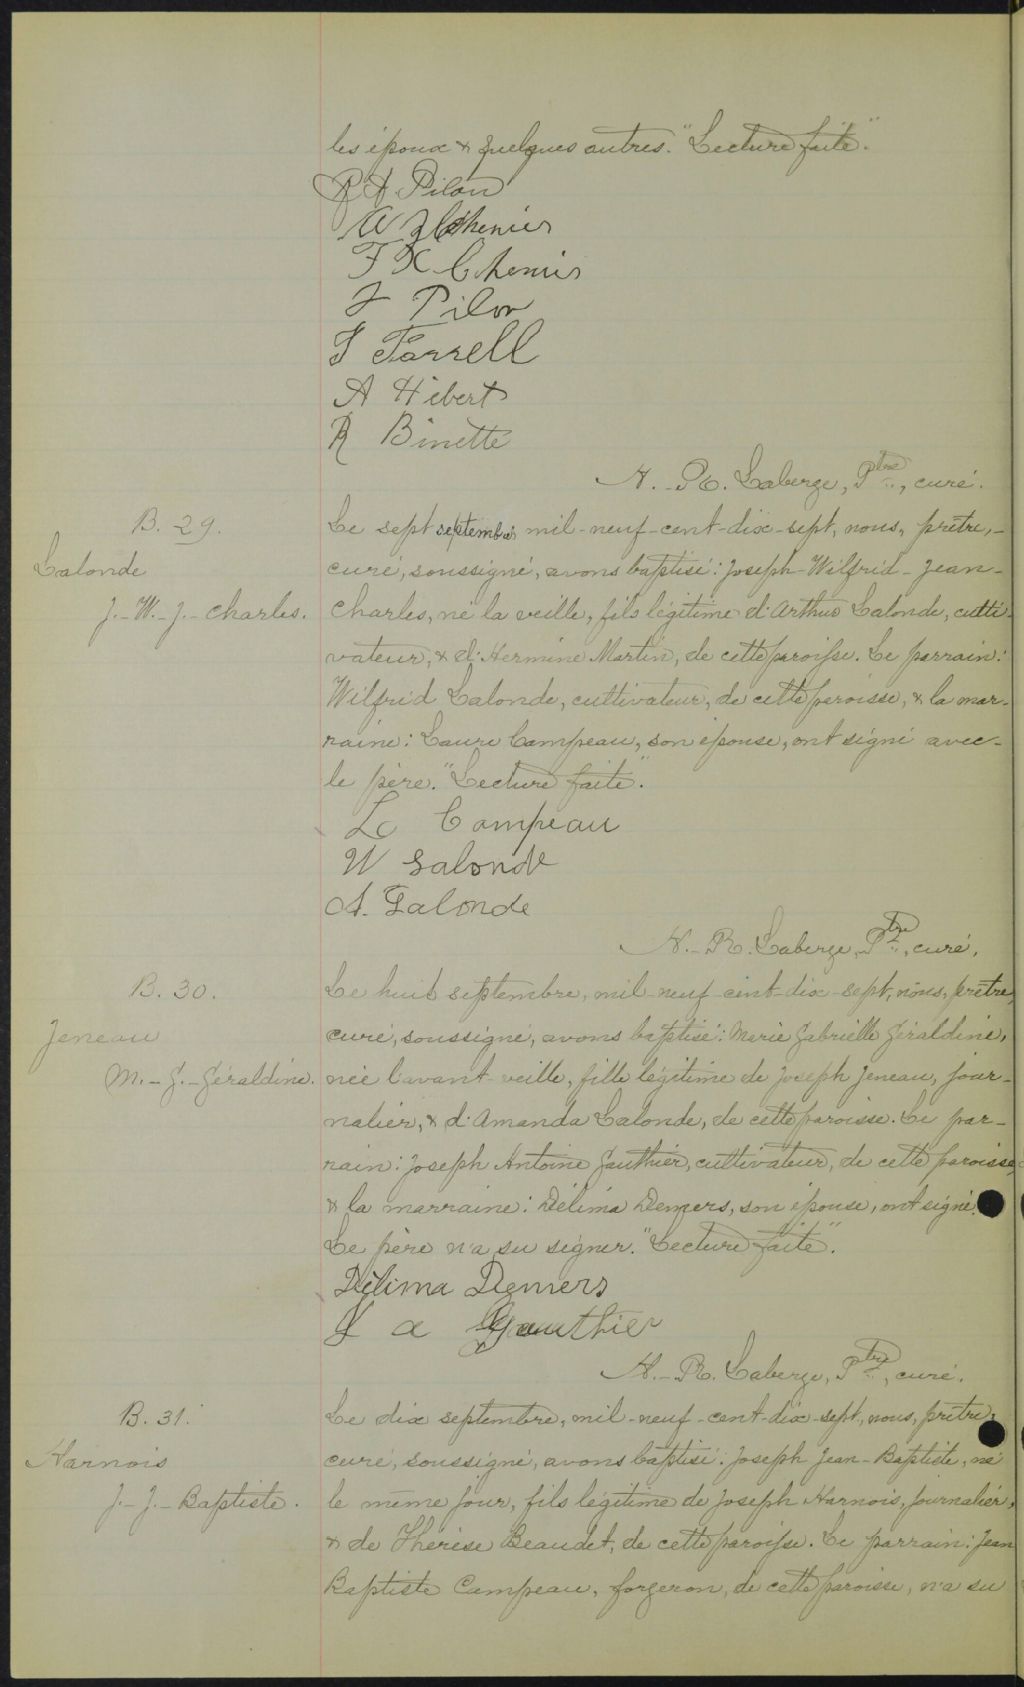 les époux & quelques autres. "Lecture faite."
R A Pilon
Chenier
F X Chenier
J Pilon
J Farrell
A Hébert
R Binette
A.-R. Laberge, Ptre, curé.
B. 29.
Lalonde
J.-W.-J.-Charles.
Le sept septembre mil-neuf-cent-dix-sept, nous, prêtre,-
curé, soussigné, avons baptisé: Joseph-Wilfrid-Jean-
Charles, né la veille, fils légitime d'Arthur Lalonde, culti-
vateur, & d'Hermine Martin, de cette paroisse. Le parrain:
Wilfrid Lalonde, cultivateur, de cette paroisse, & la mar-
raine: Laure Campeau, son épouse, ont signé avec-
le père. "Lecture faite".
L Campeau
W Lalonde
A. Lalonde
A.-R. Laberge, Ptre, curé.
B. 30.
Jeneau
M.-G.-Géraldine.
Le huit septembre, mil-neuf-cent-dix-sept, nous, prêtre,
curé, soussigné, avons baptisé: Marie Gabrielle Géraldine,
née l'avant-veille, fille légitime de Joseph Jeneau, jour-
nalier, & d'Amanda Lalonde, de cette paroisse. Le par-
rain: Joseph Antoine Gauthier, cultivateur, de cette paroisse,
& la marraine: Délima Demers, son épouse, ont signé.
Le père n'a su signer. "Lecture faite".
Délima Demers
J a Gauthier
A.-R. Laberge, Ptre, curé.
B. 31.
Harnois
J.-J.-Baptiste.
Le dix septembre, mil-neuf-cent-dix-sept, nous, prêtre,
curé, soussigné, avons baptisé: Joseph Jean-Baptiste, né
le même jour, fils légitime de Joseph Harnois, journalier,
& de Thérèse Beaudet, de cette paroisse. Le parrain: Jean
Baptiste Campeau, forgeron, de cette paroisse, n'a su